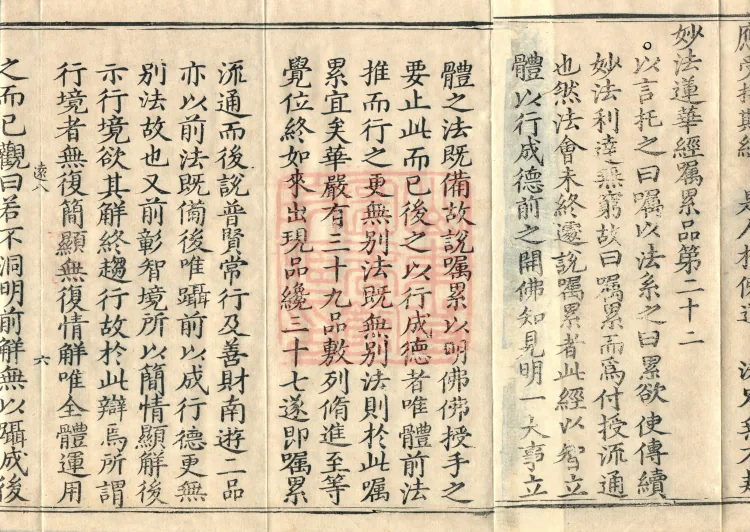 妙法蓮華經囑累品第二十二
以言托之曰囑以法系之曰累欲使傳續
妙法利達無窮故曰囑累而爲付授流通
也然法會未終遽說囑累者此經以智立
體以行成德前之開佛知見明一大事立
體之法既備故說囑累以明佛佛授手之
要止此而已後之以行成德者唯體前法
推而行之更無別法既無別法則於此囑
累宜矣華嚴有三十九品敷列脩進至等
覺位終如來出現品纔三十七遂即囑累
流通而後說普賢常行及善財南遊二品
亦以前法既備後唯躡前以成行德更無
別法故也又前彰智境所以簡情顯解後
示行境欲其解終趨行故於此辯焉所謂
行境者無復簡顯無復情解唯全體運用
遠八
六
之而已觀曰若不洞明前解無以躡成後